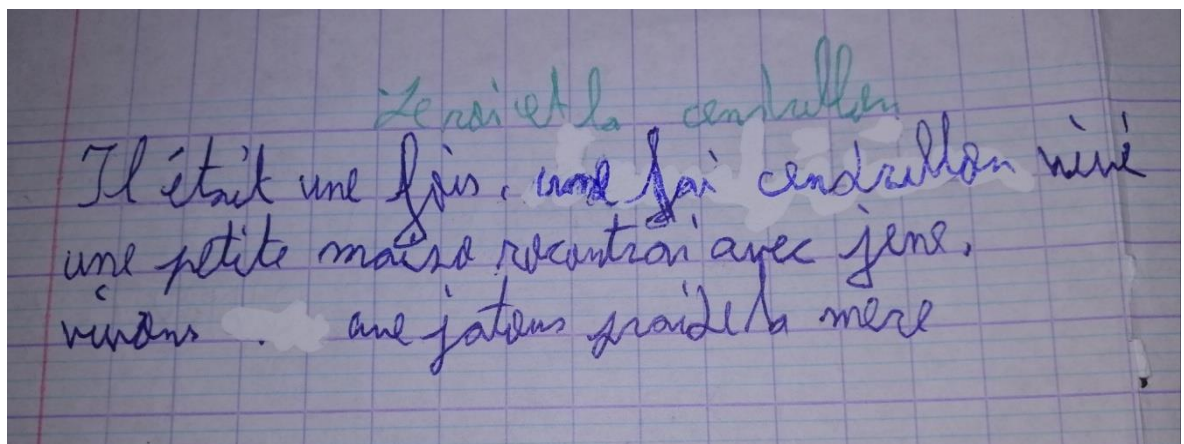 Le roi et la cendrillon
Il était une fois, une fai cendrillon vivé
une petite maiso rocontrai avec jene,
vivons ave jatons praide la mere